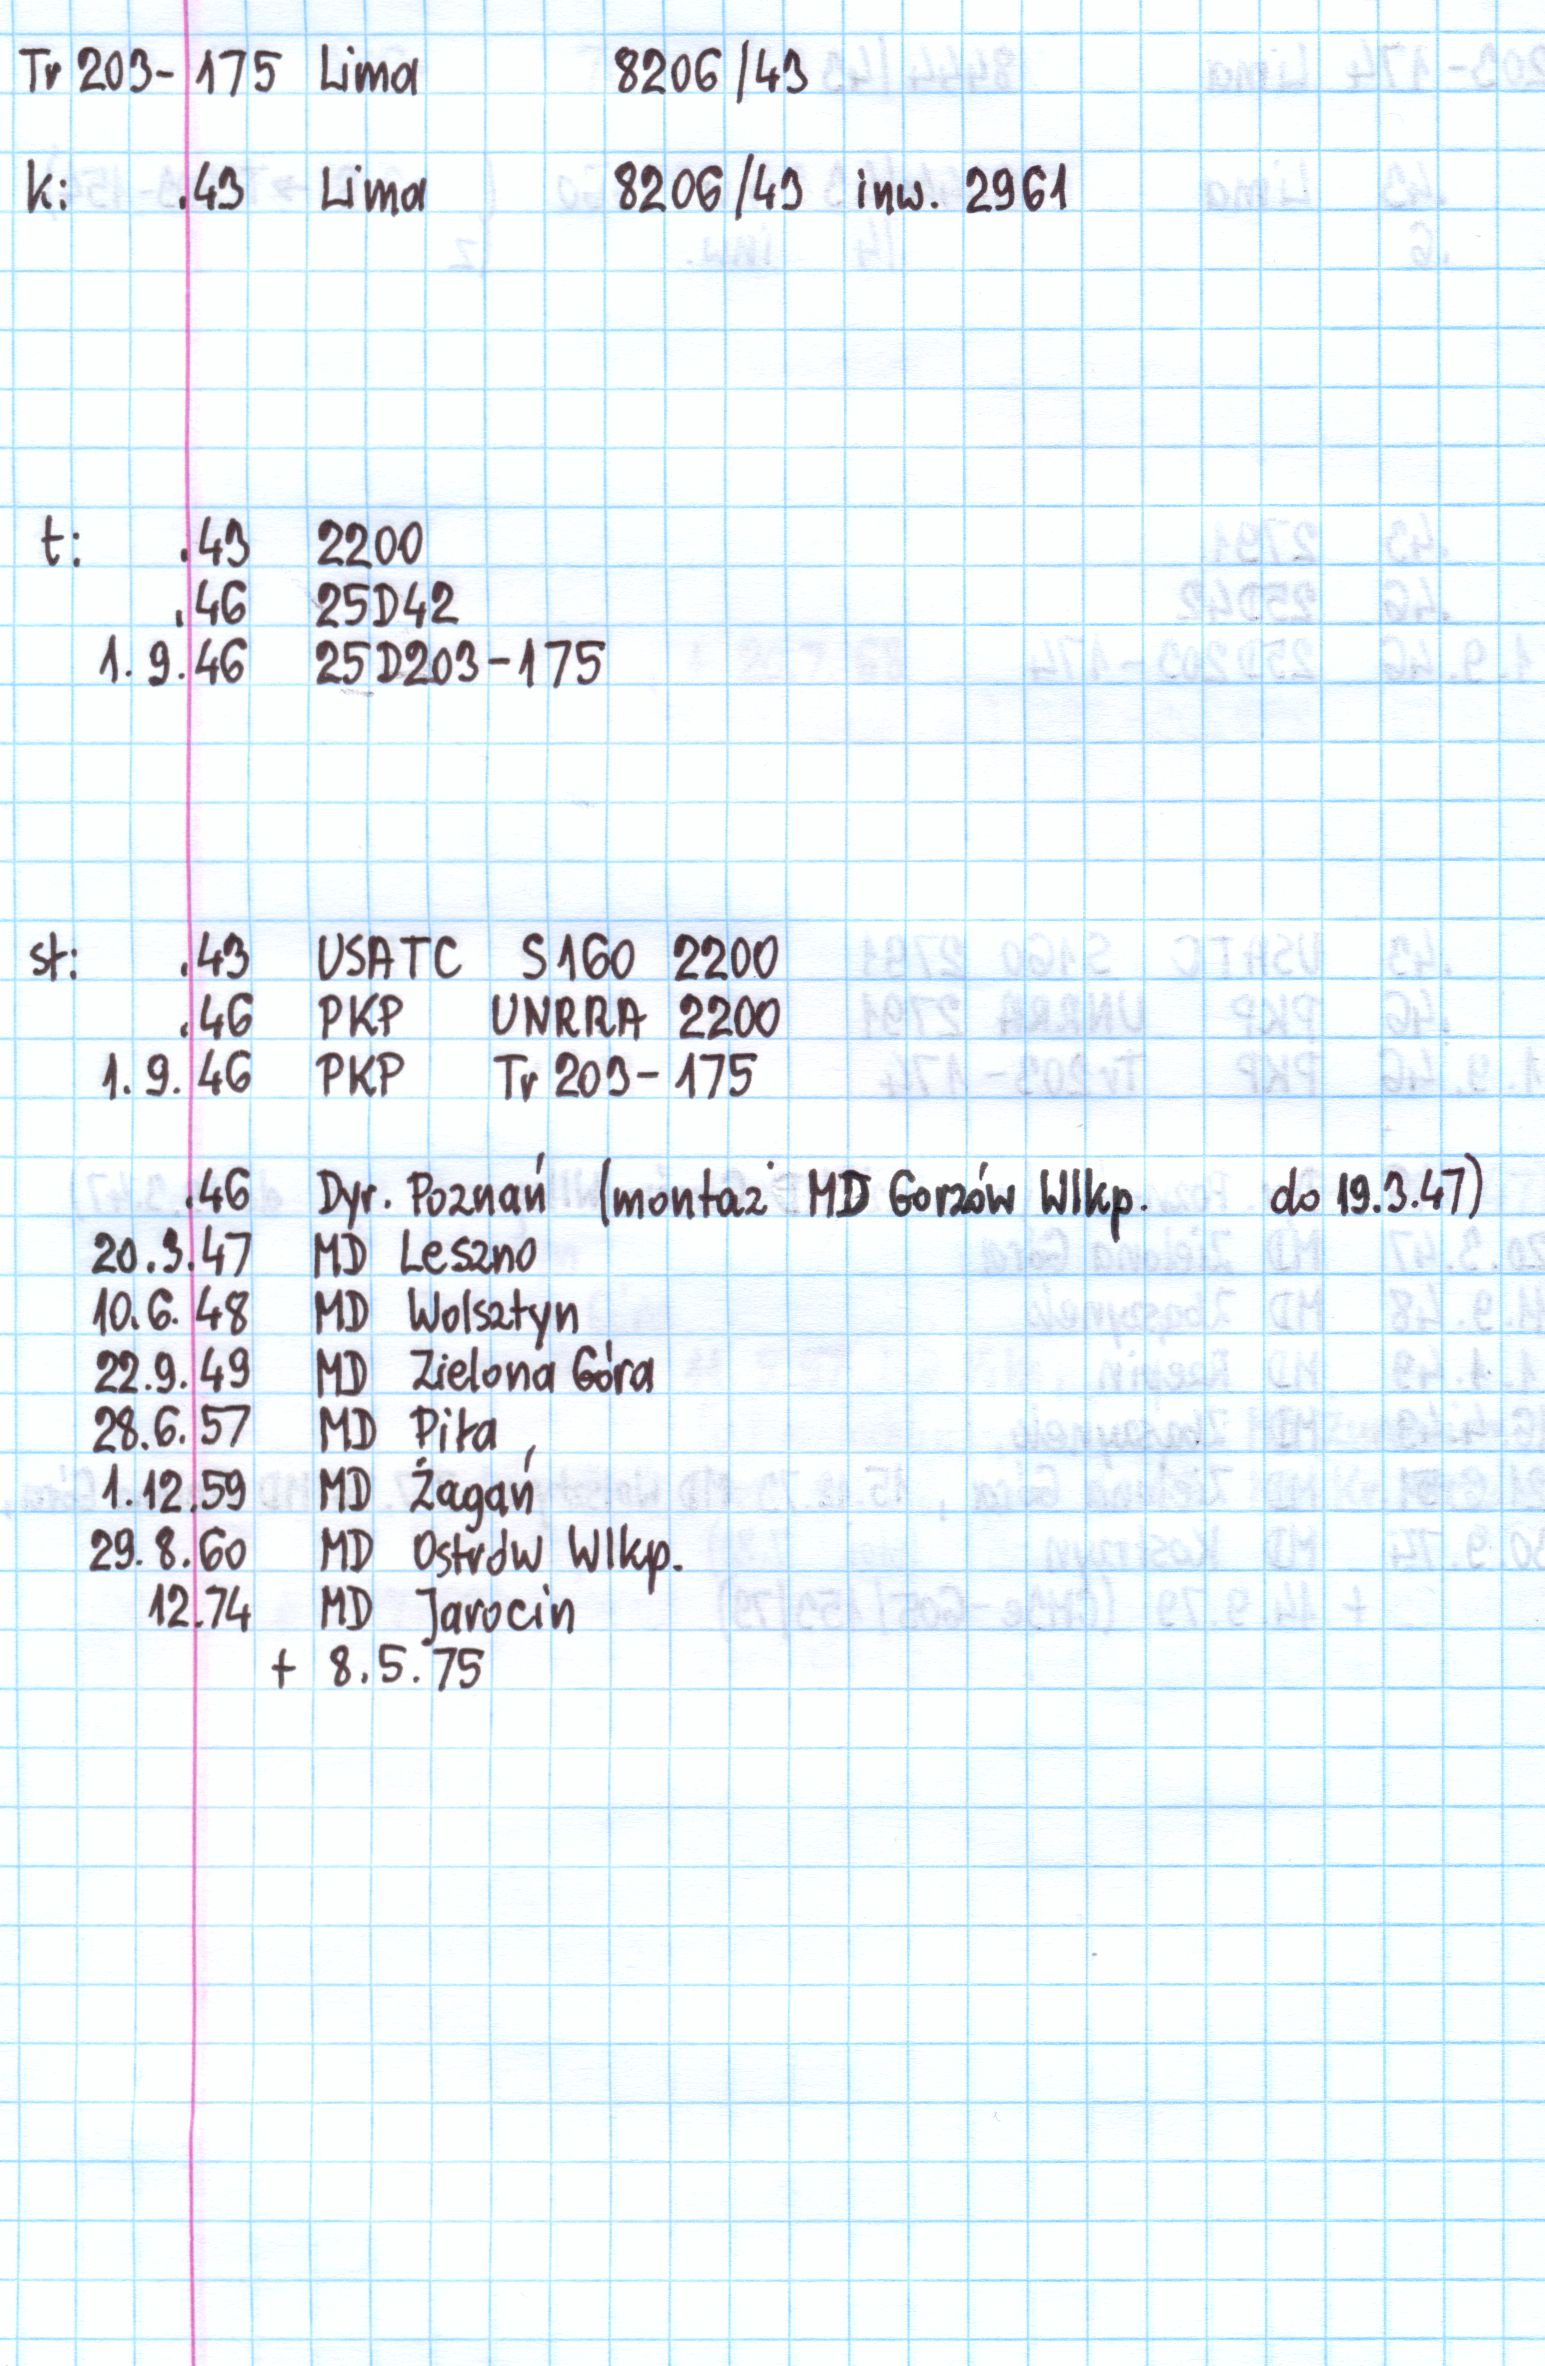 Tr 203-175 Lima 8206/43
k: .43 Lima 8206/43 inw. 2961
t: .43 2200
.46 25D42
1.9.46 25D203-175
st: .43 USATC S160 2200
.46 PKP UNRRA 2200
1.9.46 PKP Tr 203-175
.46 Dyr. Poznań (montaż MD Gorzów Wlkp. do 19.3.47)
20.3.47 MD Leszno
10.6.48 MD Wolsztyn
22.9.49 MD Zielona Góra
28.6.57 MD Piła
1.12.59 MD Żagań
29.8.60 MD Ostrów Wlkp.
12.74 MD Jarocin
+ 8.5.75